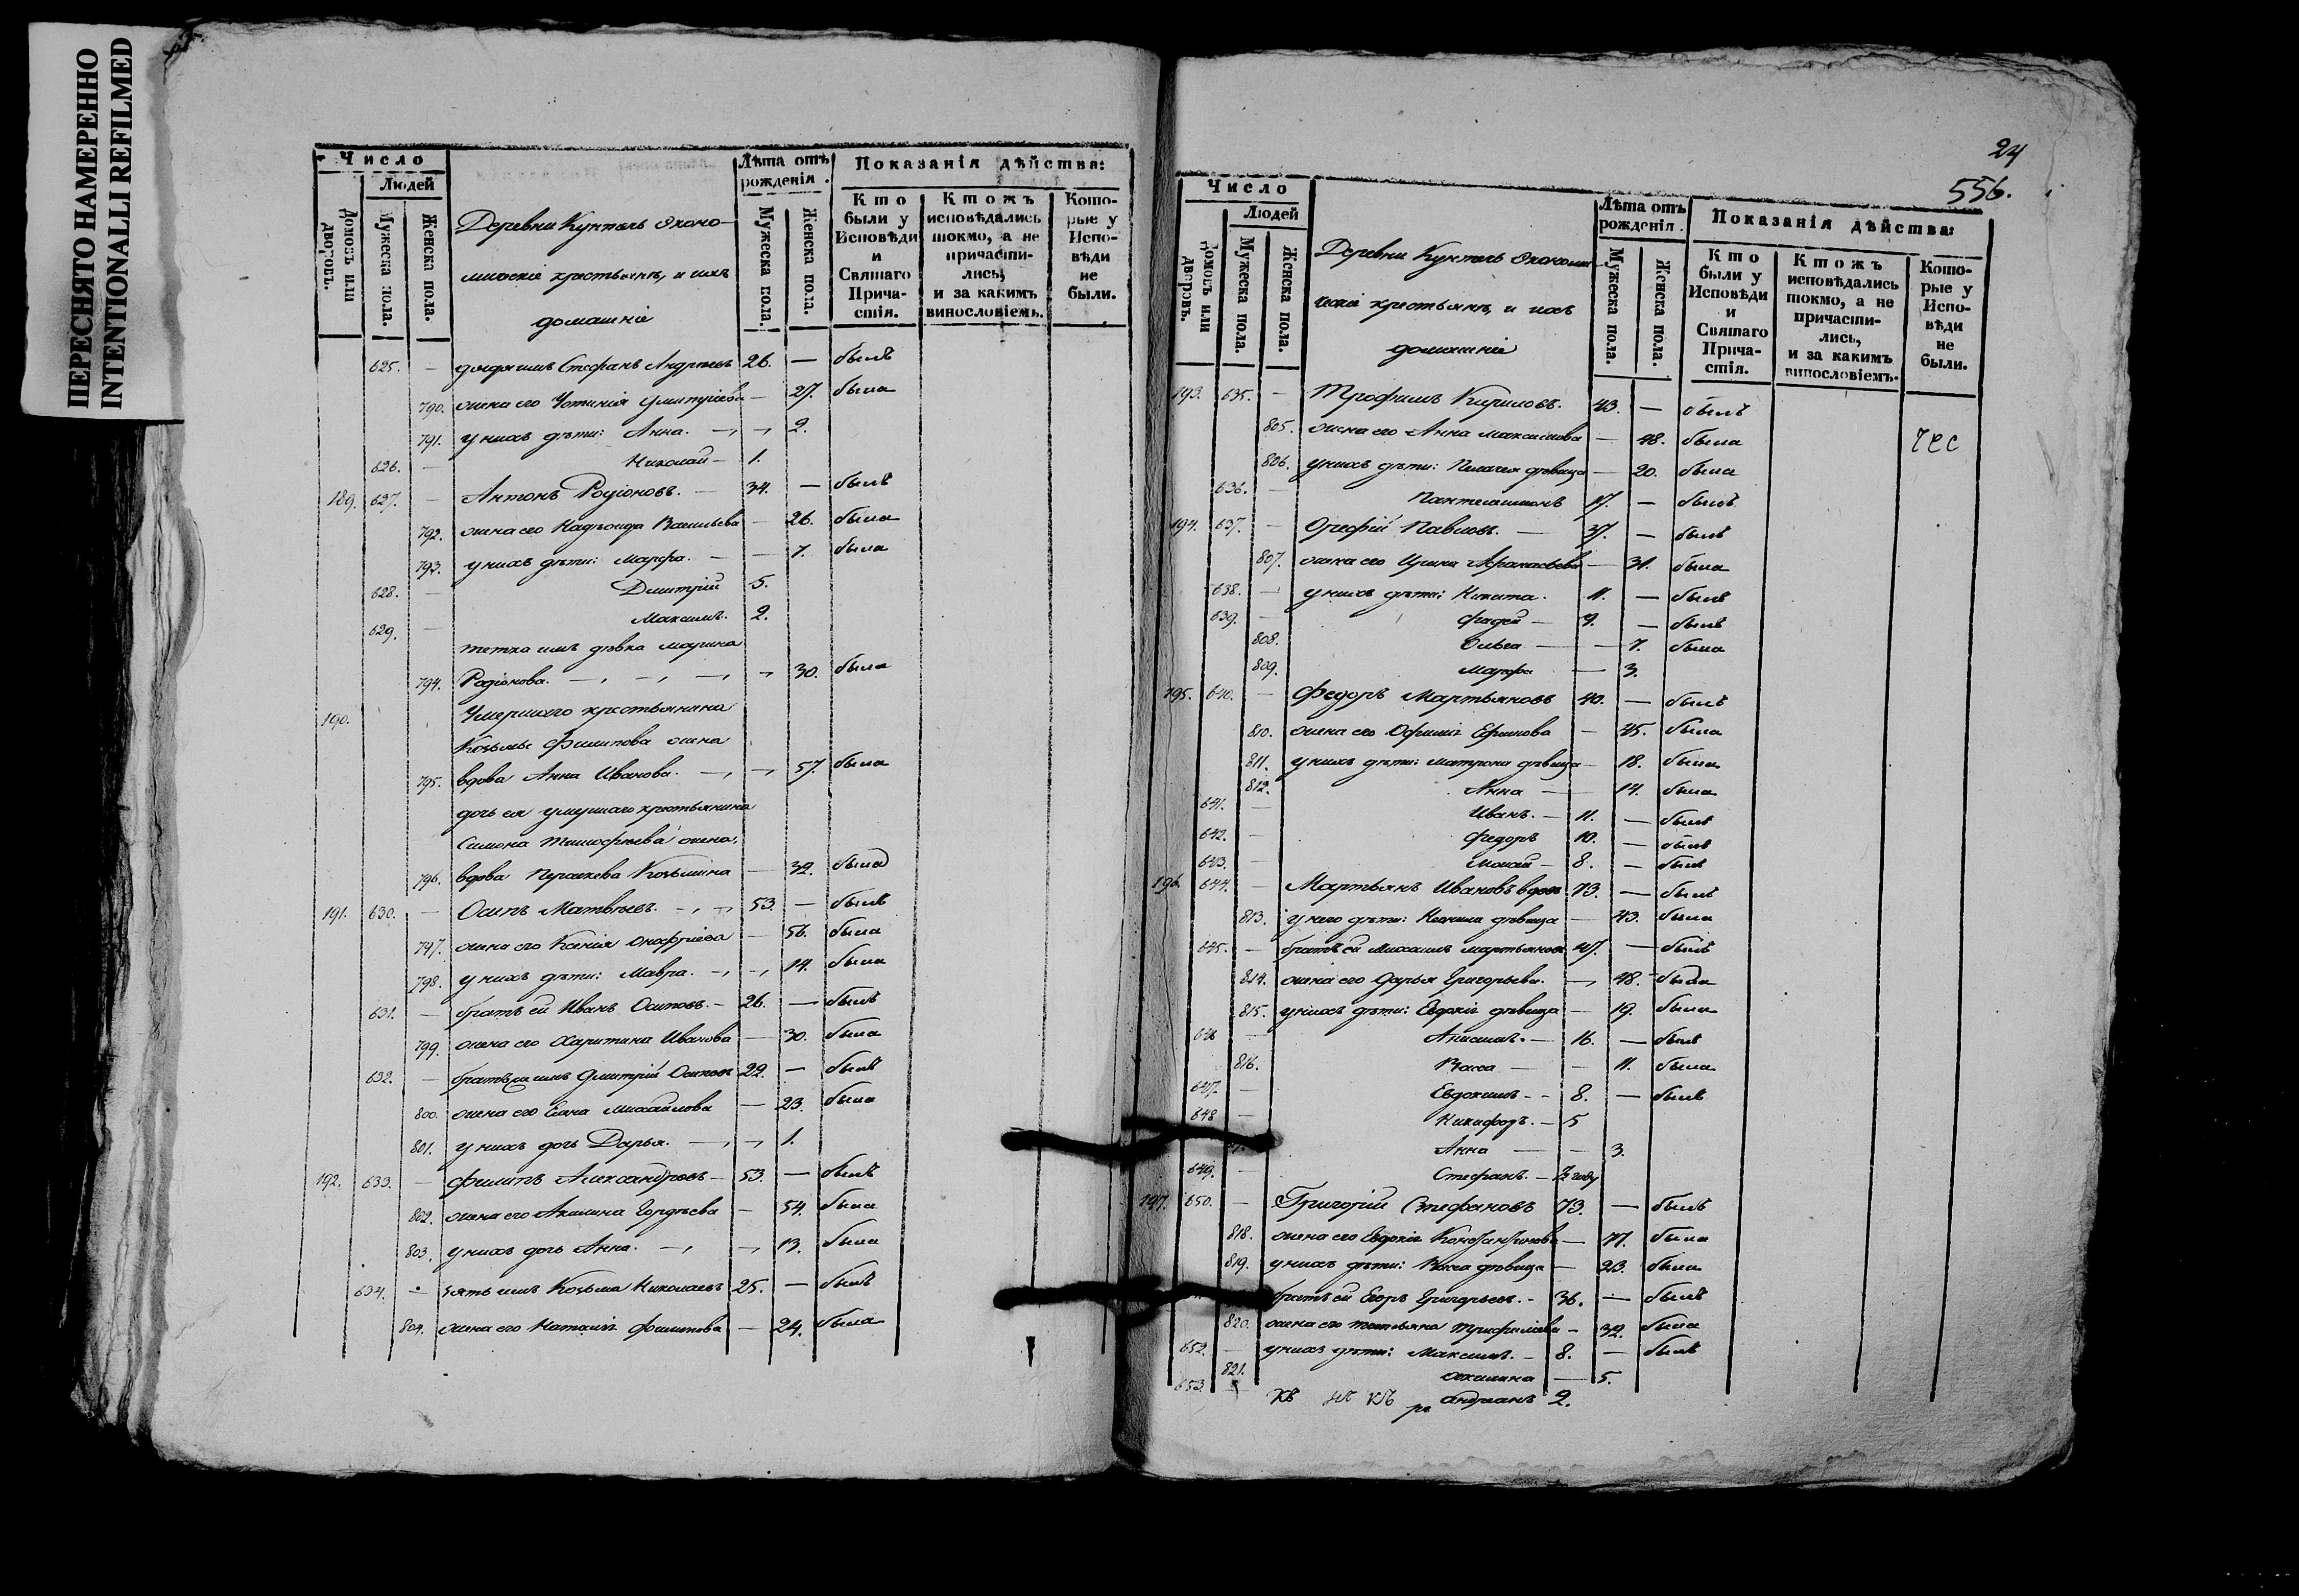 ПЕРЕСНЯТО НАМЕРЕННО
INTENTIONALLI REFILMED
Число
Людей
Домовъ или дворовъ.
Мужеска пола.
Женска пола.
Деревни Кунтель Эконо-
мическіе крестьяне, и ихъ
домашніе
Лѣта отъ рожденія.
Мужеска пола.
Женска пола.
Показанія дѣйства:
Кто были у Исповѣди и Святаго Причастія.
Ктожъ исповѣдались токмо, а не причастились, и за какимъ винословіемъ.
Которые у Исповѣди не были.
625. — Стефанъ Андреевъ 26. — былъ
790. жена его Устинія Дмитріева — 27. была
791. у нихъ дѣти: Анна. — 2.
626. — Николай — 1.
189. 627. — Антонъ Родіоновъ. — 34. — былъ
792. жена его Надежда Васильева — 26. была
793. у нихъ дѣти: Марфа. — — 7. была
628. — Дмитрій 5.
629. — Максимъ. 2.
тетка имъ дѣвка Марина
794. Родіонова. — 30. была
190. Умершаго крестьянина
Козьмы Филипова жена
795. вдова Анна Иванова. — 57. была
дочь ея умершаго крестьянина
Симона Тимофѣева жена,
796. вдова Параскева Козьмина — 32. была
191. 630. — Осипъ Матвѣевъ. — 53. — былъ
797. жена его Ксенія Онофріева — 56. была
798. у нихъ дѣти: Мавра. — 14. была
631. — братъ ей Иванъ Осиповъ. — 26. — былъ
799. жена его Харитина Иванова — 30. была
632. — братъ имъ Дмитрій Осиповъ 22. — былъ
800. жена его Елена Михайлова — 23. была
801. у нихъ дочь Дарья. — 1.
192. 633. — Филипъ Александровъ — 53. — былъ
802. жена его Акилина Гордѣева — 54. была
803. у нихъ дочь Анна. — 13. была
634. — зять имъ Козьма Николаевъ 25. — былъ
804. жена его Наталія Филипова — 24. была
24
556.
Число
Людей
Домовъ или дворовъ.
Мужеска пола.
Женска пола.
Деревни Кунтель Экономи-
ческіе крестьяне, и ихъ
домашніе
Лѣта отъ рожденія.
Мужеска пола.
Женска пола.
Показанія дѣйства:
Кто были у Исповѣди и Святаго Причастія.
Ктожъ исповѣдались токмо, а не причастились, и за какимъ винословіемъ.
Которые у Исповѣди не были.
193. 635. — Трофимъ Кириловъ. 43. — былъ
805. жена его Анна Максимова — 48. была
806. у нихъ дѣти: Пелагея дѣвица — 20. была
636. — Пантелеимонъ 17. — былъ
194. 637. — Павловъ. — 37. — былъ
807. жена его Ирина Афанасьева — 31. была
638. — у нихъ дѣти: Никита. 11. — былъ
639. — Фадей — 9. — былъ
808. Ольга — — 7. была
809. Марфа — 3.
195. 640. — Федоръ Мартьяновъ 40. — былъ
810. жена его Ефимова — 45. была
811. у нихъ дѣти: Матрона дѣвица — 18. была
812. Анна — 14. была
641. — Иванъ. — 11. — былъ
642. — Федоръ 10. — былъ
643. — Моисей — 8. — былъ
196. 644. — Мартьянъ Ивановъ вдовъ 73. — былъ
813. у него дѣти: Неонила дѣвица — 43. была
645. — братъ ей Михаилъ Мартьяновъ 47. — былъ
814. жена его Дарья Григорьева. — 48. была
815. у нихъ дѣти: Евдокія дѣвица — 19. была
646 — Анисимъ. — 16. — былъ
816. Васса — — 11. была
647. — Евдокимъ — 8. — былъ
648 — Никифоръ. — 5
Анна — — 3.
649. — Стефанъ. — ½ году
197. 650. — Григорій Стефановъ 73. — былъ
818. жена его Евдокія Константинова — 77. была
819. у нихъ дѣти: Васса дѣвица — 23. была
братъ ей Егоръ Григорьевъ. — 36. — былъ
820. жена его Татьяна Трифилова — 32. была
652. — у нихъ дѣти: Максимъ. — 8. — былъ
821. Акилина — 5.
653. Андрианъ 2.